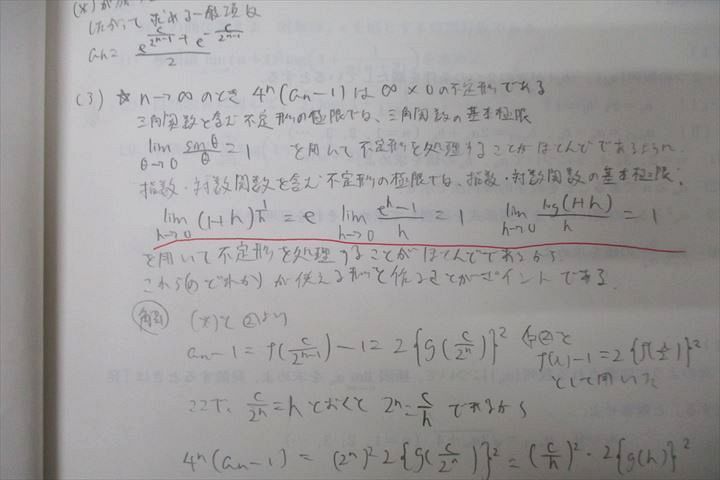 したがって 求める一般項は
an = (e^{c/2^{n-1}} + e^{-c/2^{n-1}})/2
(3) ☆ n→∞ のとき 4^n(an-1) は ∞×0 の不定形である
三角関数を含む不定形の極限では、三角関数の基本極限
lim_{θ→0} sinθ/θ = 1 を用いて不定形を処理することがほとんどであるように、
指数・対数関数を含む不定形の極限では、指数・対数関数の基本極限、
lim_{h→0} (1+h)^{1/h} = e lim_{h→0} (e^h-1)/h = 1 lim_{h→0} log(1+h)/h = 1
を用いて不定形を処理することがほとんどであるから
これら(のどれか)が使える形を作ることがポイントである.
解 (*)と②より
an-1 = f(c/2^{n-1})-1 = 2{g(c/2^n)}^2
として用いた
ここで、 c/2^n = h とおくと 2^n = c/h であるから
4^n(an-1) = (2^n)^2 2{g(c/2^n)}^2 = (c/h)^2・2{g(h)}^2